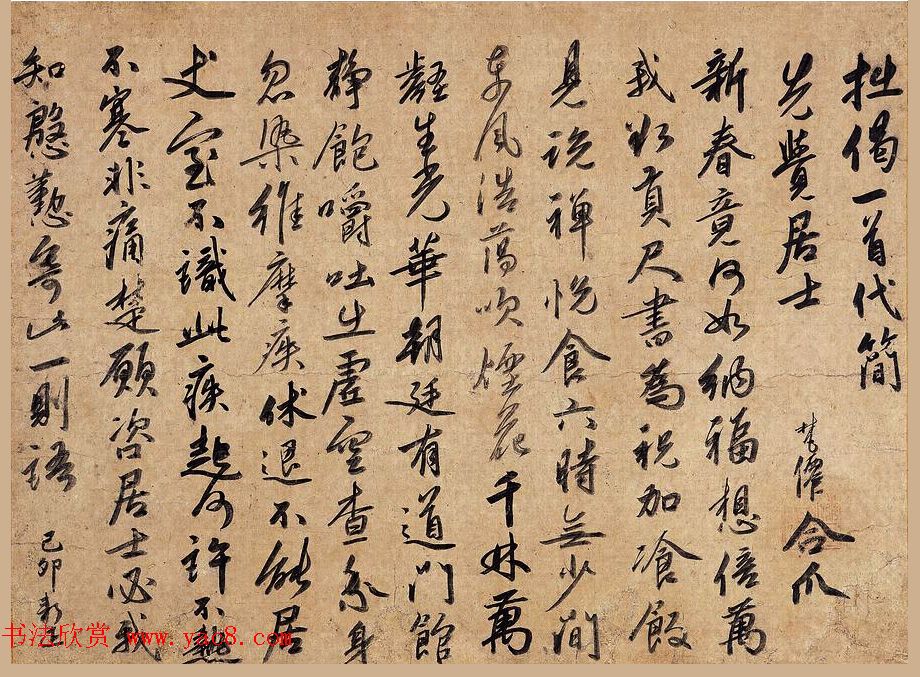 拙偈一首代簡
先覺居士
僧合爪
新春竟何如納福想倍萬
我欲貢尺書為祝加飡飯
見說禪悅食六時無少間
東風浩蕩吹煙花千林萬
壑生光華朝廷有道門館
靜飽嚼吐生虛空查身
忽染維摩疾休退不能居
丈室不識此疾起何許不熱
不寒非痛楚願咨居士必我
知慇懃寄此一則語
己卯
书法欣赏 www.yac8.com